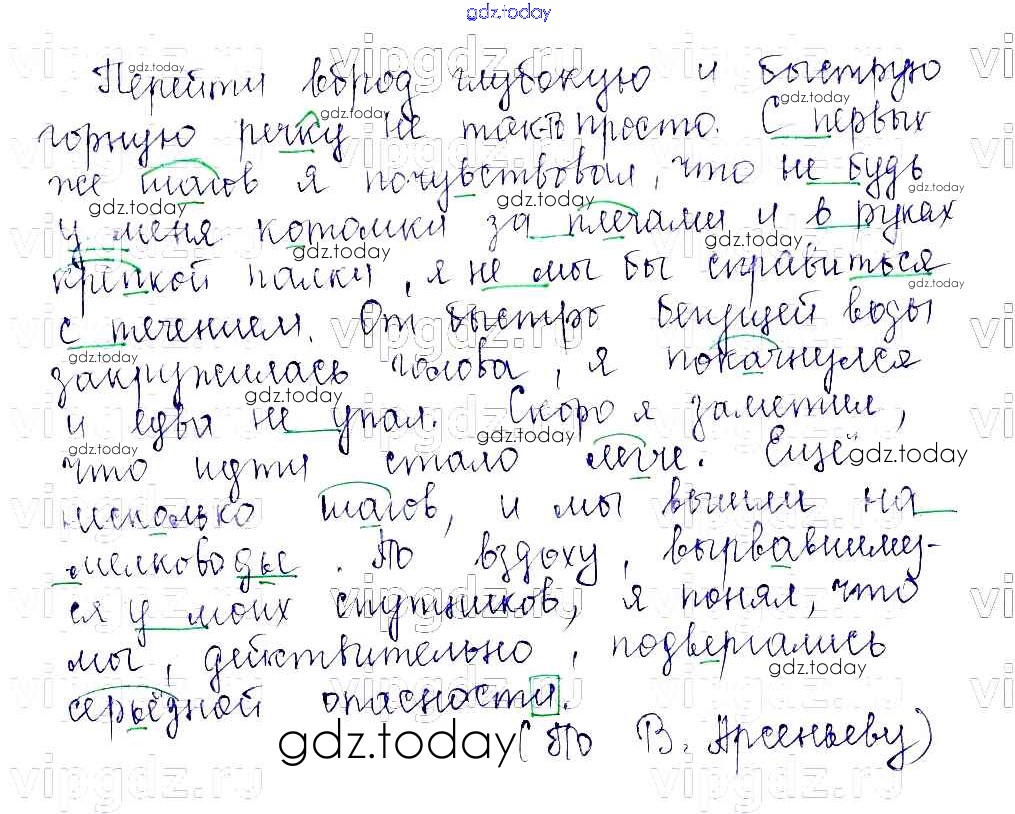 gdz.today
Перейти вброд глубокую и быструю
горную речку не так-то просто. С первых
же шагов я почувствовал, что не будь
у меня котомки за плечами и в руках
крепкой палки, я не мы бы справиться
с течением. От быстро бегущей воды
закружилась голова, я покачнулся
и едва не упал. Скоро я заметил,
что идти стало легче. Ещё
несколько шагов, и мы вышли на
мелководье. По вздоху, вырвавшему-
ся у моих спутников, я понял, что
мы, действительно, подвергались
серьёзной опасности.
gdz.today (По В. Арсеньеву)